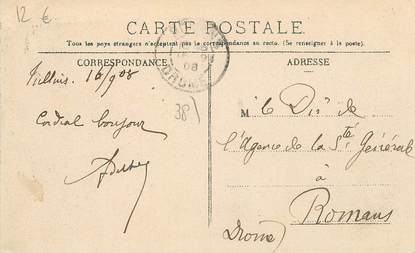 12 €
CARTE POSTALE.
Tous les pays étrangers n'acceptent pas la correspondance au recto. (Se renseigner à la poste).
CORRESPONDANCE
ADRESSE
16/9 08
Cordial bonjour
38
DROME
08
M le Dir de
l'Agence de la Sté Générale
à
Romans
Drome